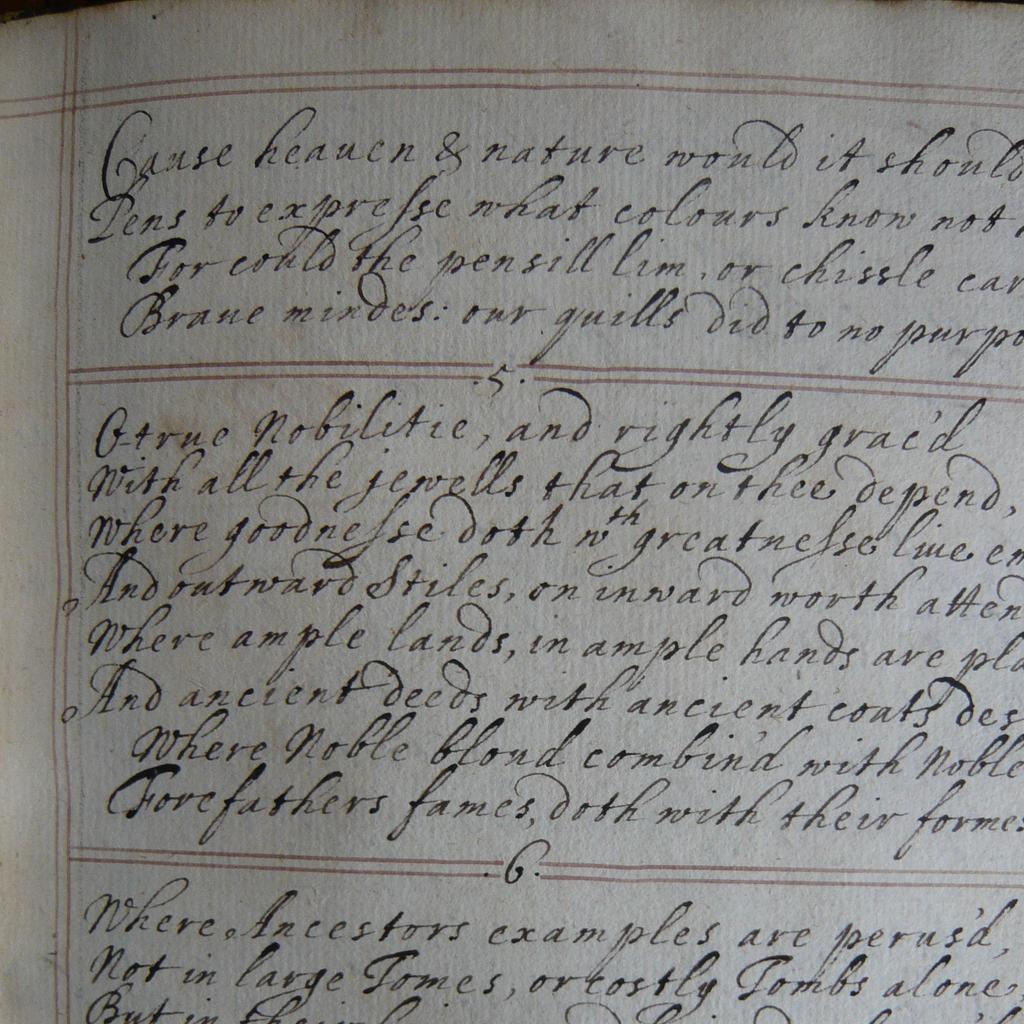 Cause heauen & nature would it should
Pens to expresse what colours know not
For could the pensill lim, or chissle
Braue mindes: our quills did to no
.5.
O true Nobilitie, and rightly grac'd
With all the jewells that on thee depend,
Where goodnesse doth wth greatnesse liue
And outward Stiles, on inward worth
Where ample lands, in ample hands are
And ancient deeds with ancient coats
Where Noble bloud combin'd with Noble
Forefathers fames, doth with their
.6.
Where Ancestors examples are perus'd,
Not in large Tomes, or costly Tombs alone,
But in their